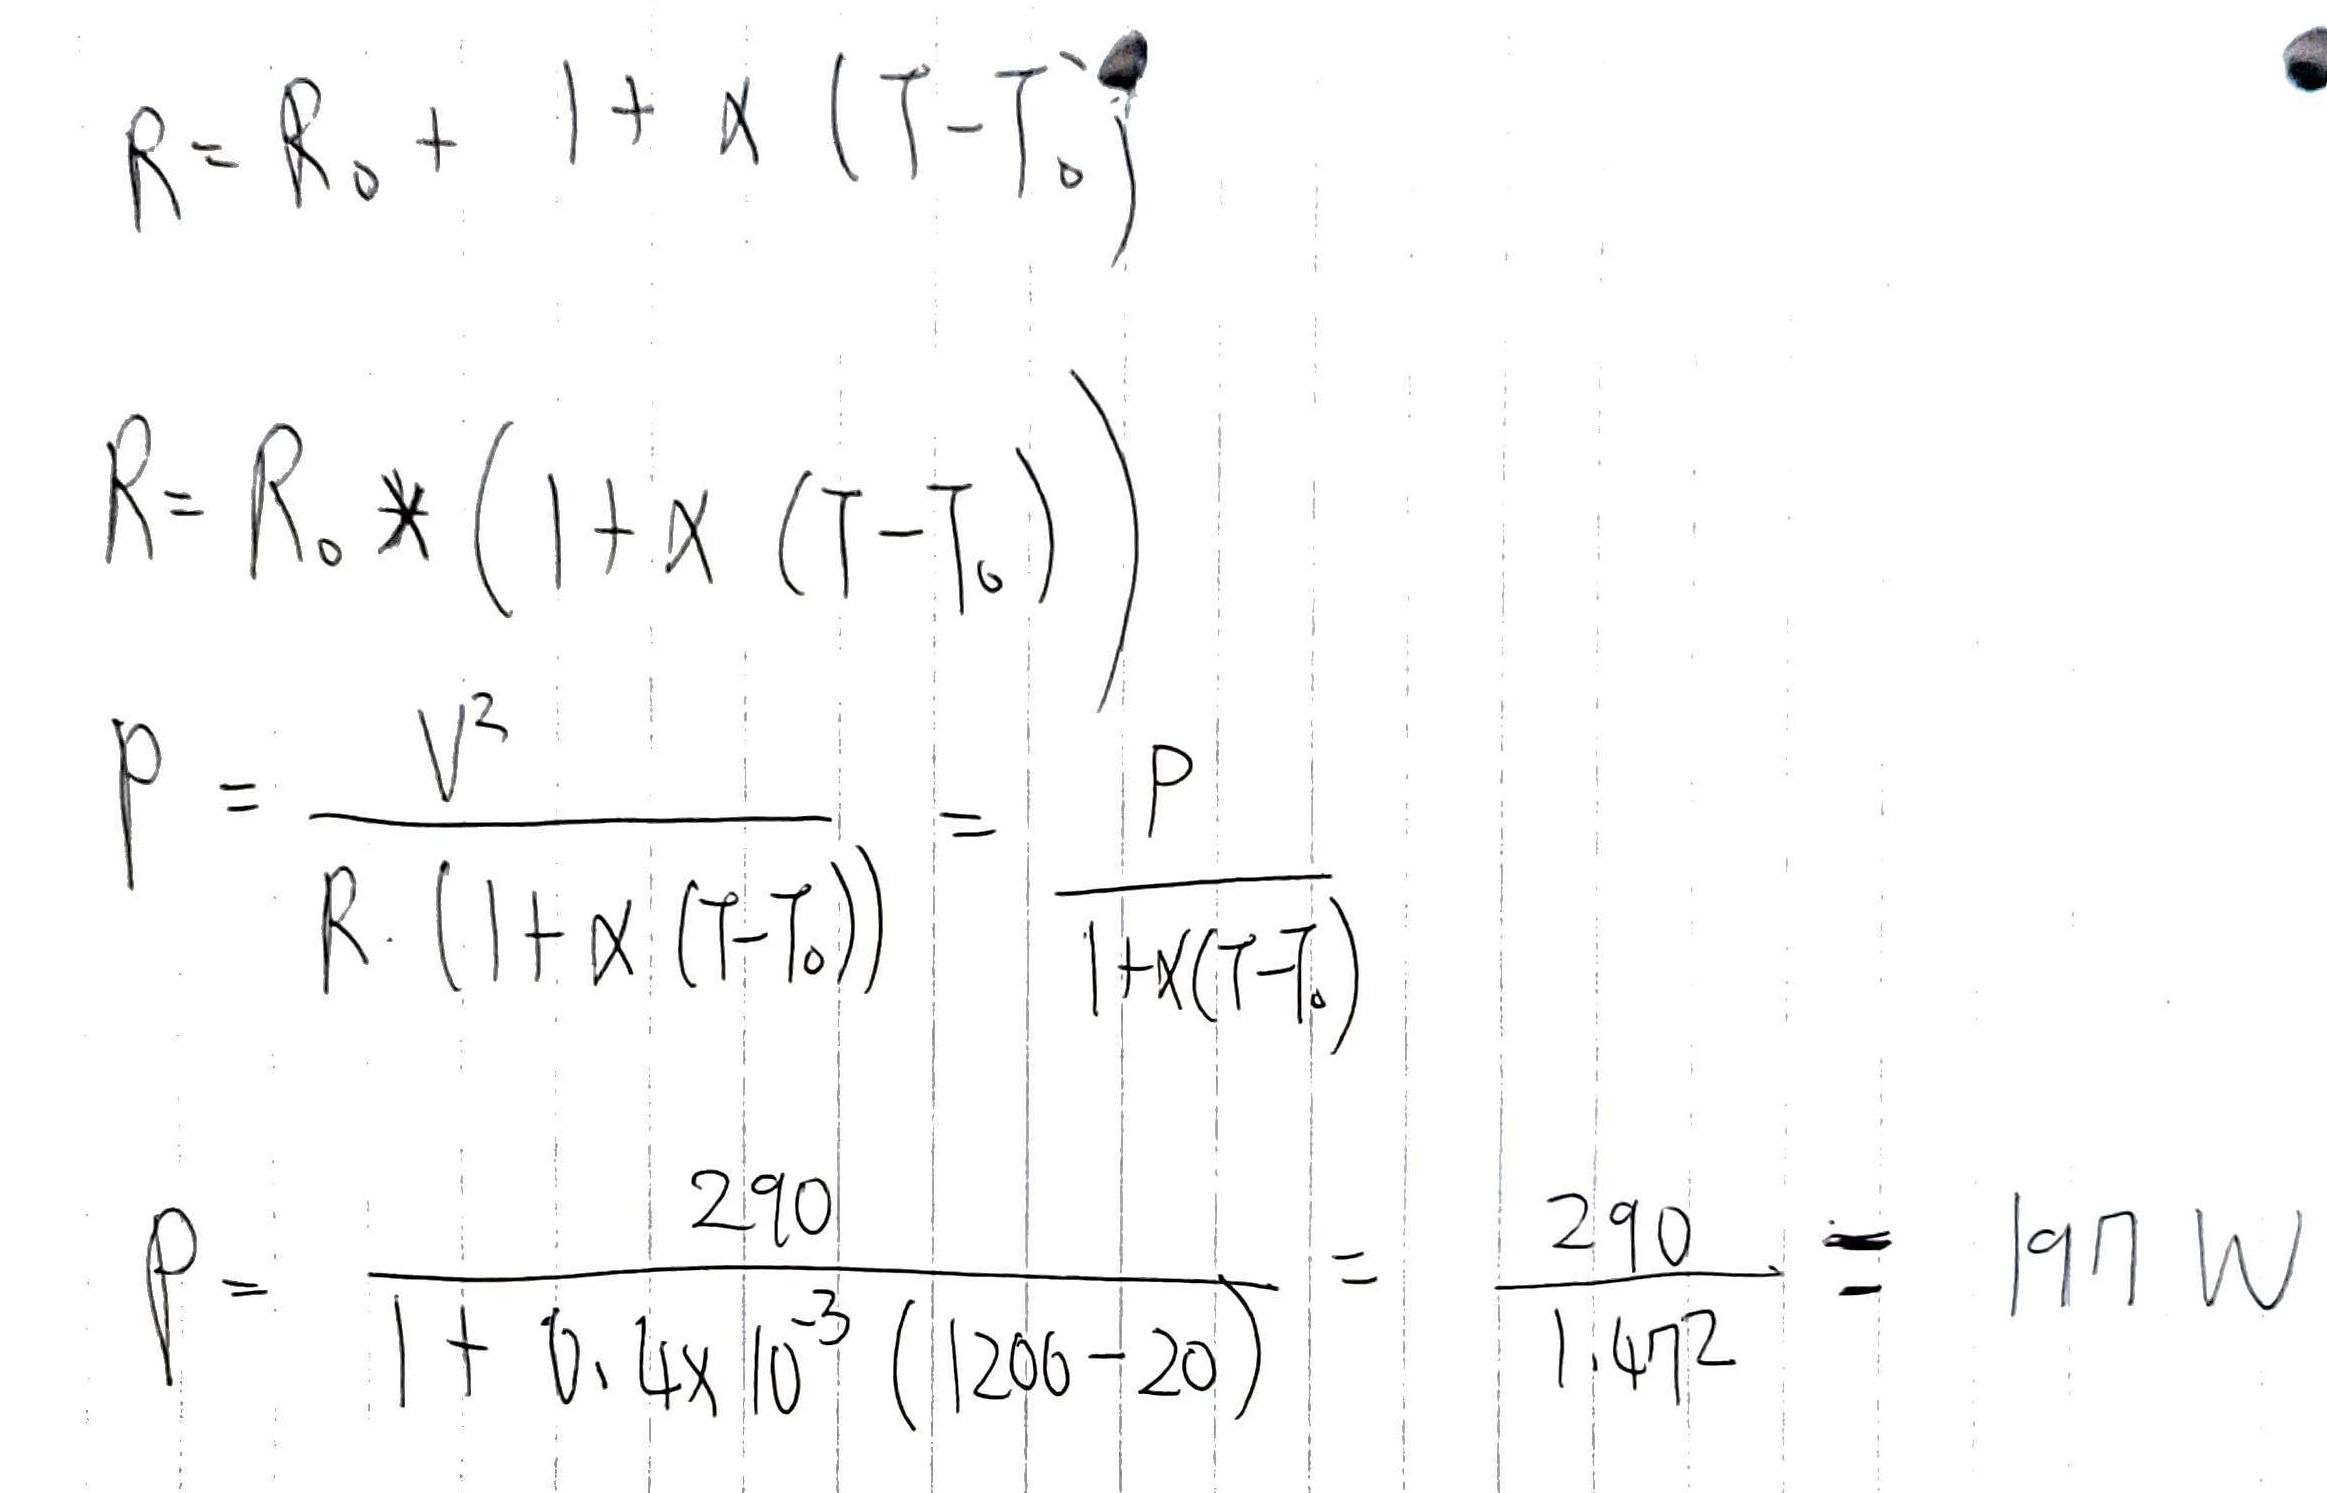 R = R₀ + 1 + α (T - T₀)
R = R₀ * (1 + α (T - T₀))
P = V² / R · (1 + α (T - T₀)) = P / 1 + α (T - T₀)
P = 290 / 1 + 0.4 x 10⁻³ (1200 - 20) = 290 / 1.472 = 197 W